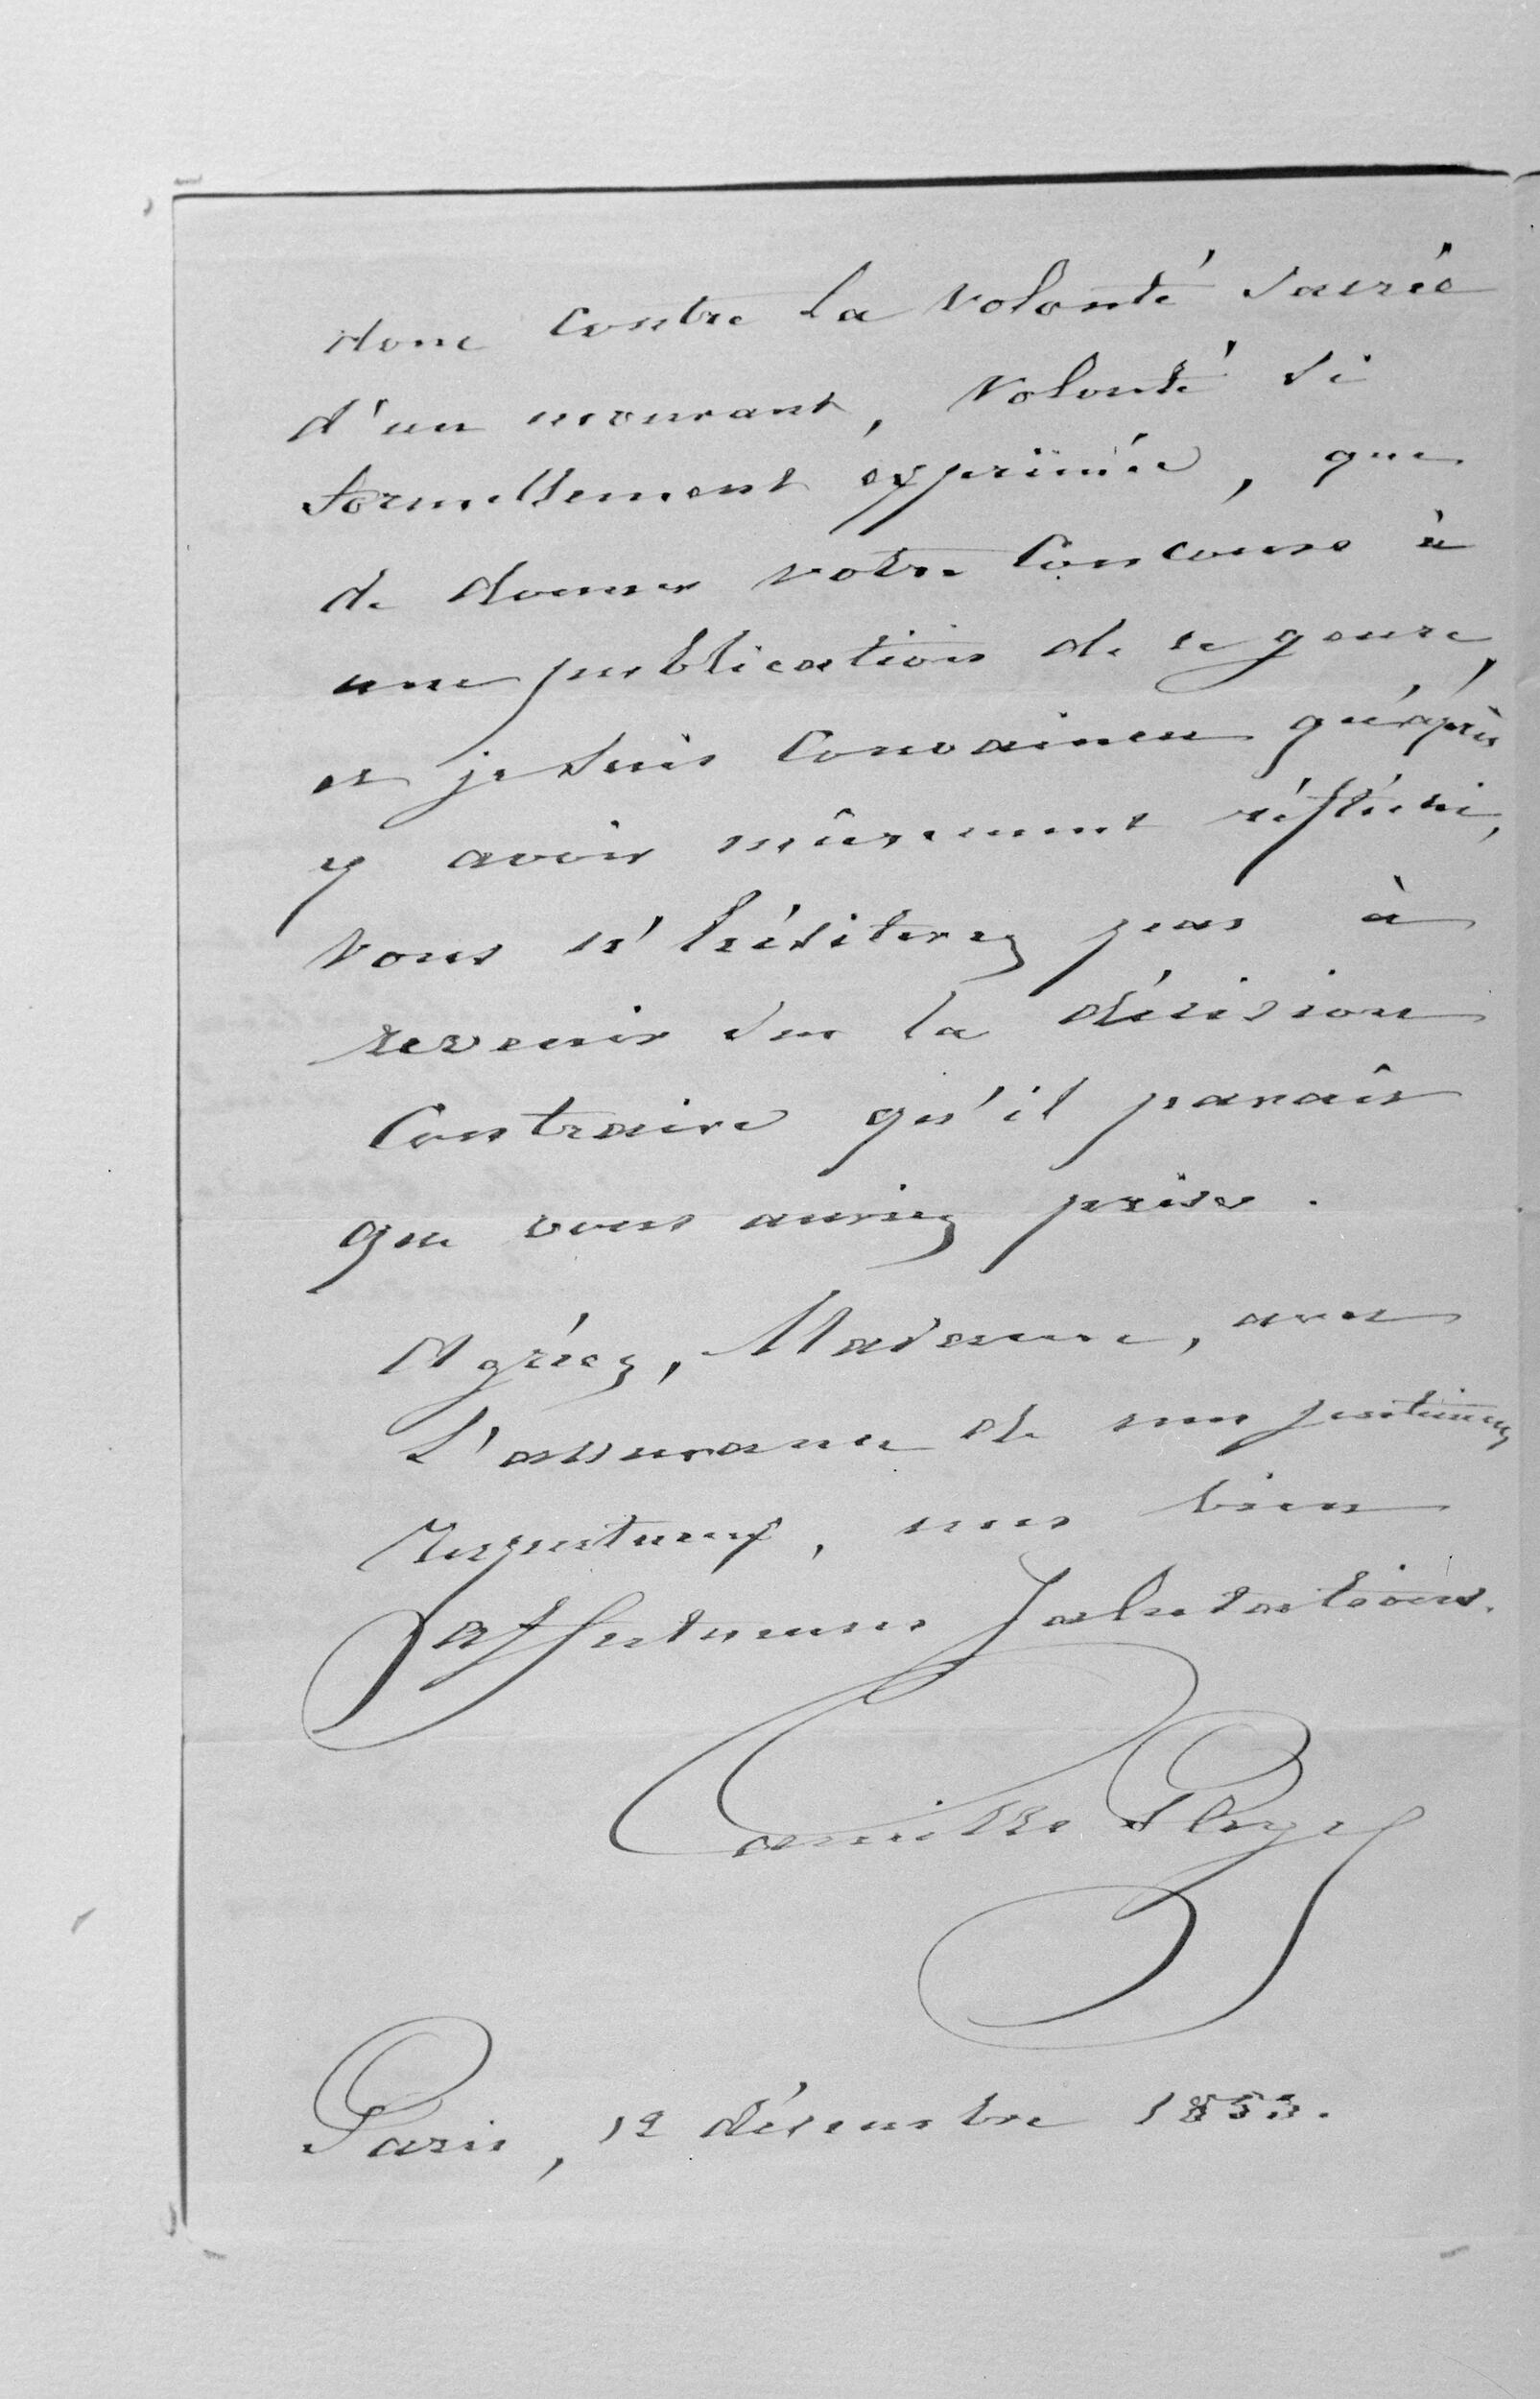 donc contre la volonté sacrée
d'un mourant, volonté si
formellement exprimée, que
de donner votre concours à
une publication de ce genre,
et je suis convaincu qu'après
y avoir mûrement réfléchi,
vous n'hésiterez pas à
revenir sur la décision
contraire qu'il paraît
que vous auriez prise.
Agréez, Madame, avec
l'assurance de mes sentimens
respectueux, mes bien
affectueuses salutations.
Camille Pleyel
Paris, 12 décembre 1853.